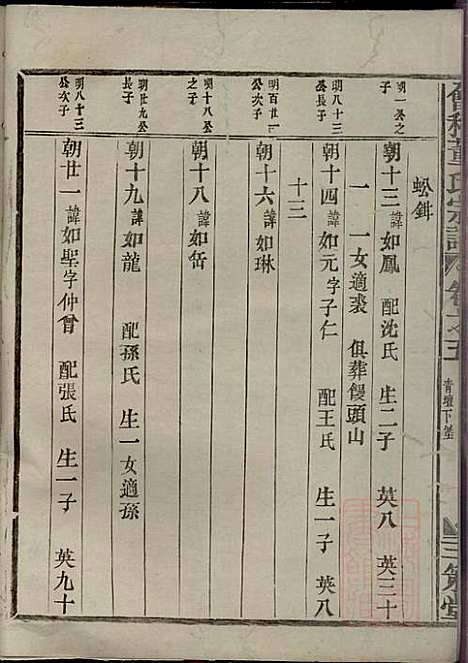 會稽董氏宗譜 卷之五 青壇下堡 三策堂
蚣鉺
明一公之子
朝十三 諱如鳳 配沈氏 生二子 英八 英三十
一 一女適裘 俱葬饅頭山
明八十三公長子
朝十四 諱如元 字子仁 配王氏 生一子 英八
十三
明百廿一公次子
朝十六 諱如琳
明十八公之子
朝十八 諱如岳
明廿九公長子
朝十九 諱如龍 配孫氏 生一女適孫
明八十三公次子
朝廿一 諱如聖 字仲曾 配張氏 生一子 英九十